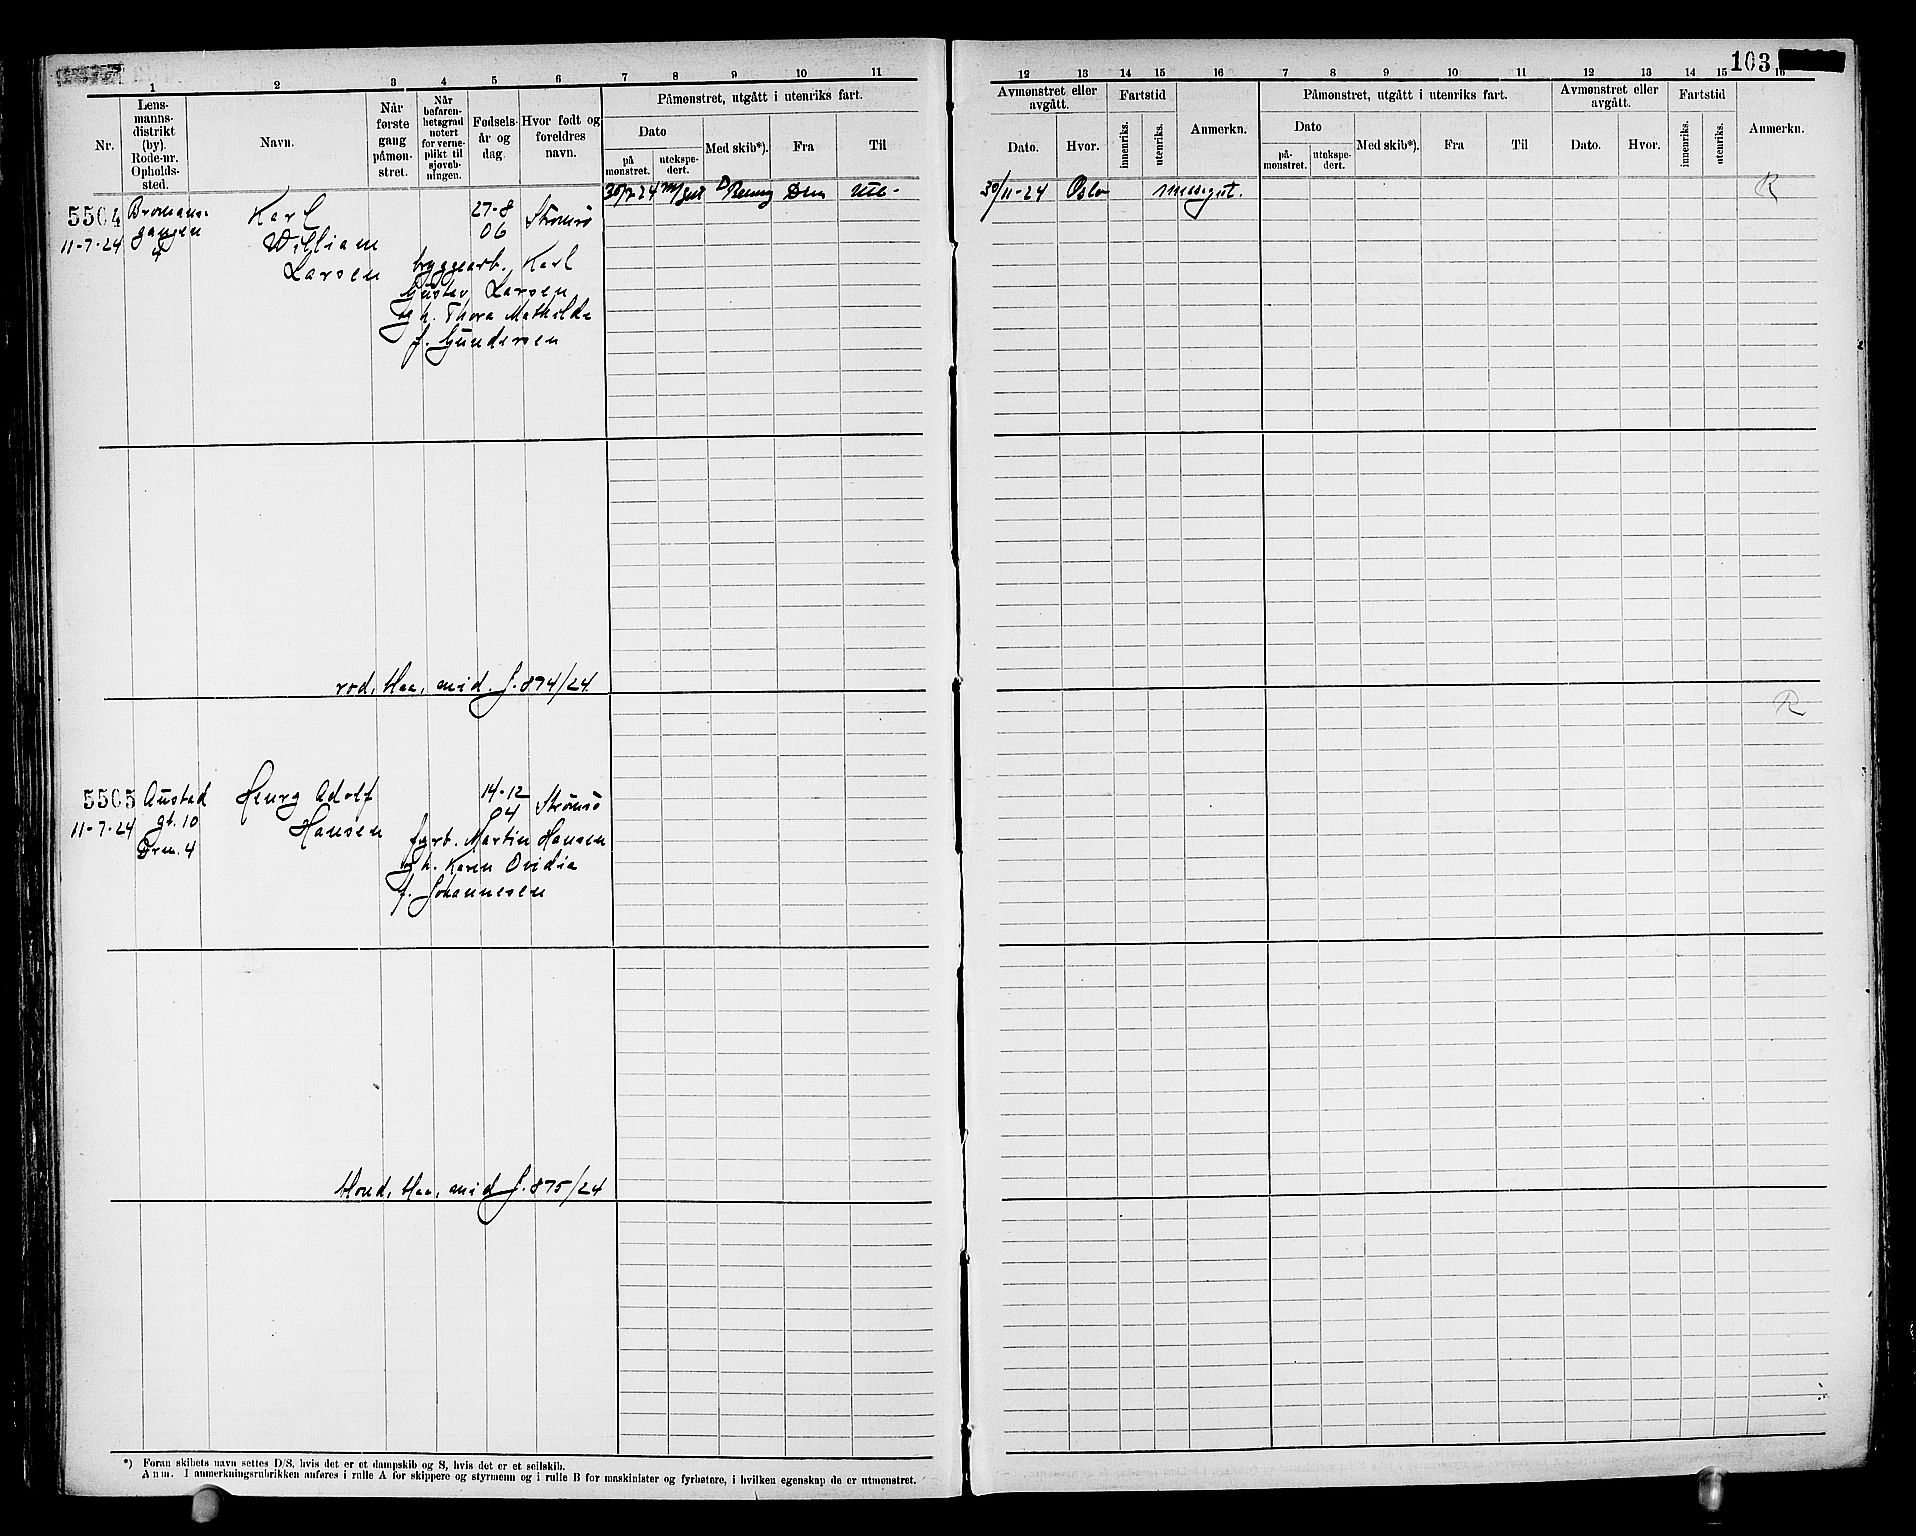 103
1 2 3 4 5 6 7 8 9 10 11
12 13 14 15 16 7 8 9 10 11 12 13 14 15 16
Nr.
Lens-
manns-
distrikt
(by).
Rode-nr.
Opholds-
sted.
Navn.
Når
første
gang
påmøn-
stret.
Når
befaren-
hetsgrad
notert
for verne-
plikt til
sjøveb-
ningen.
Fødsels-
år og
dag.
Hvor født og
foreldres
navn.
Påmønstret, utgått i utenriks fart.
Dato
på
mønstret.
utekspe-
dert.
Med skib*).
Fra
Til
Avmønstret eller
avgått.
Dato.
Hvor.
Fartstid
innenriks.
utenriks.
Anmerkn.
Påmønstret, utgått i utenriks fart.
Dato
på-
mønstret.
utekspe-
dert.
Med skib*).
Fra
Til
Avmønstret eller
avgått.
Dato.
Hvor.
Fartstid
innenriks.
utenriks.
Anmerkn.
5504
11-7-24
gangen
4
Karl
William
Larsen
27-8
06
Strømsø
bryggearb. Karl
Gustav Larsen
og h. Thora Mathilde
f. Gundersen
30/7-24 Drm Utl-
30/11-24 Oslo messegut.
R
rød, Haa, mid. J. 874/24.
R
5505
11-7-24
Austad
gt. 10
Drm. 4
Henry Adolf
Hansen
14-12
04
Strømsø
fyrb. Martin Hansen
og h. Karen Ovidia
f. Johannesen
blond, Haa, mid J. 875/24
*) Foran skibets navn settes D/S, hvis det er et dampskib og S, hvis det er et seilskib.
Anm. I anmerkningsrubrikken anføres i rulle A for skippere og styrmenn og i rulle B for maskinister og fyrbøtere, i hvilken egenskap de er utmønstret.